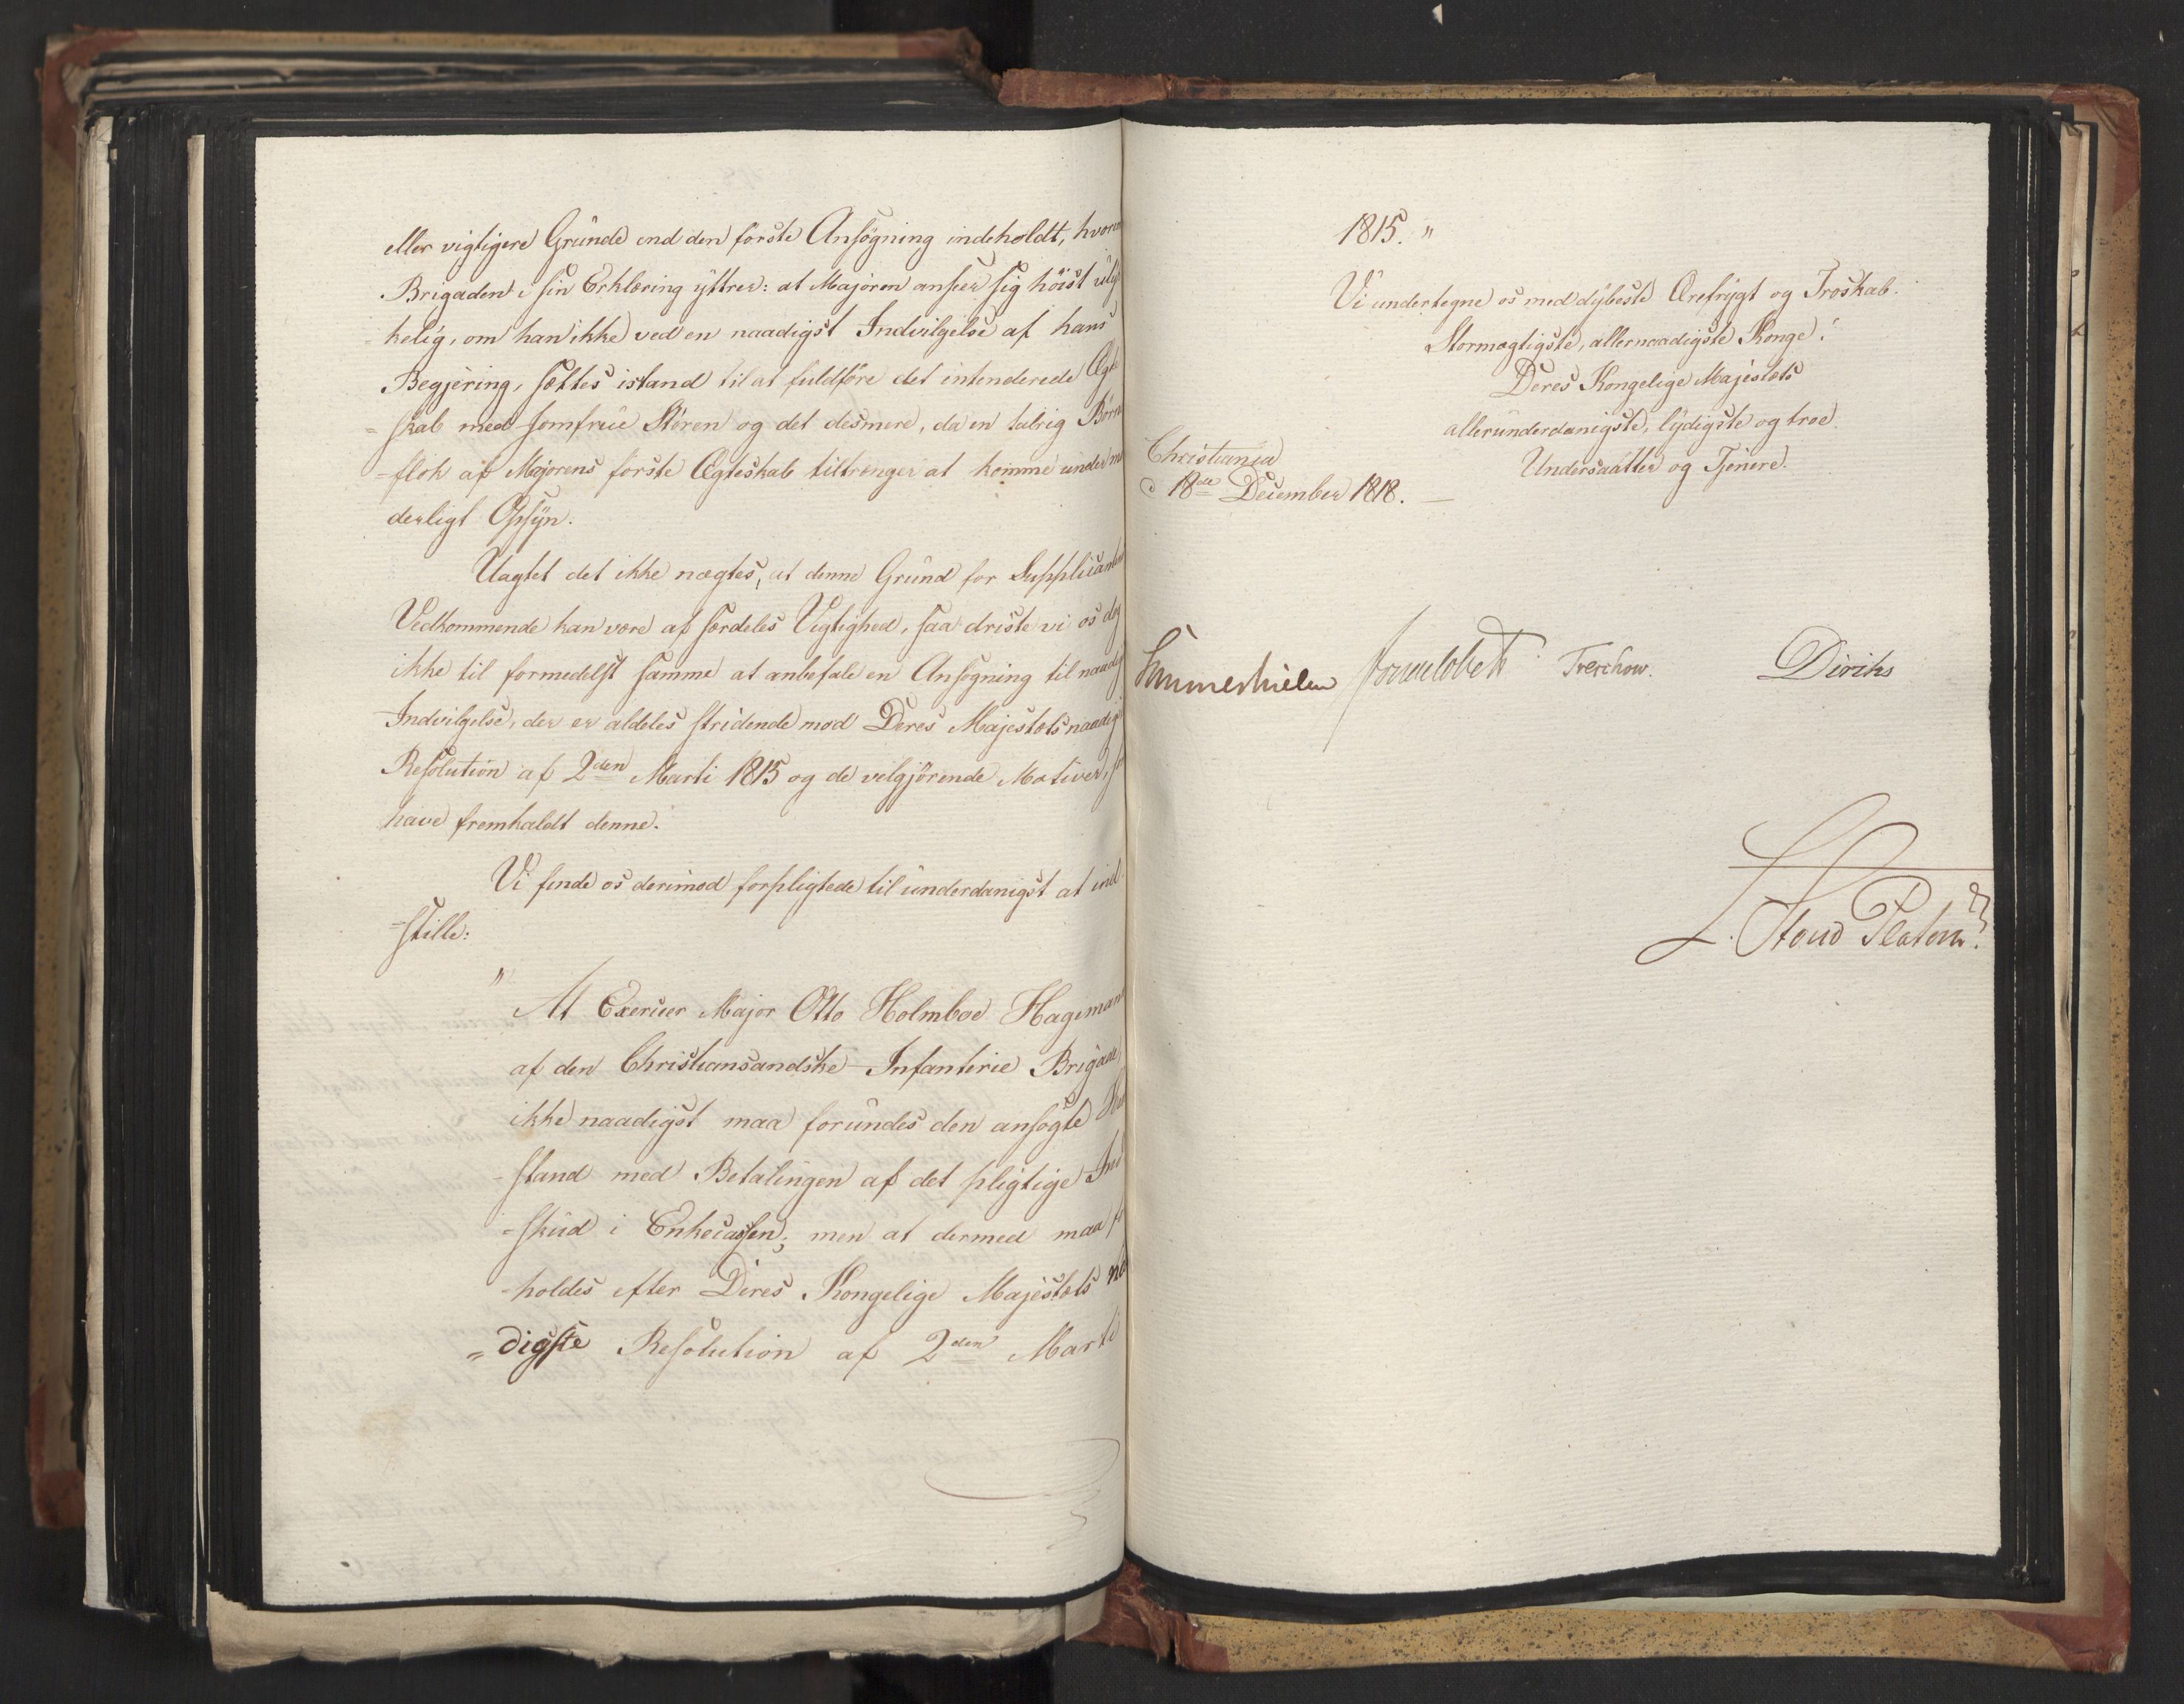 eller vigtigere Grunde end den förste Ansögning indeholdt,
Brigaden i sin Erklæring yttrer: at Majoren anseer sig höist ulyk
=kelig, om han ikke ved en naadigst Indvilgelse af hans
Begjering, sættes istand til at fuldföre det intenderede Ægte
=skab med Jomfrue Stören og det desmere, da en talrig Börne
=flok af Majorens förste Ægteskab tiltrænger at komme under
derligt Opsyn.
Uagtet det ikke nægtes, at denne Grund for Supplicanten
Vedkommende kan være af særdeles Vigtighed, saa driste vi os dog
ikke til formedelst samme at anbefale en Ansögning til naadig
Indvilgelse, der er aldeles stridende mod Deres Majestæts naadig
Resolution af 2den Marti 1815 og de velgjörende Motiver,
have fremkaldt denne.
Vi finde os derimod forpligtede til underdanigst at ind
=stille:
" At Exerceer Major Otto Holmboe Hagemann
af den Christiansandske Infanterie Brigade
ikke naadigst maa forundes den ansögte Hen
=stand med Betalingen af det pligtige Ind
=skud i Enkecassen; men at dermed maa for
=holdes efter Deres Kongelige Majestæts
=digste Resolution af 2den Marti
1815. "
Vi undertegne os med dybeste Ærefrygt og Troskab.
Stormægtigste, allernaadigste Konge!
Deres Kongelige Majestæts
allerunderdanigste, lydigste og troe
Undersaatter og Tjenere.
Christiania
d 18de December 1818.
Sommerhielm Treschow. Diriks